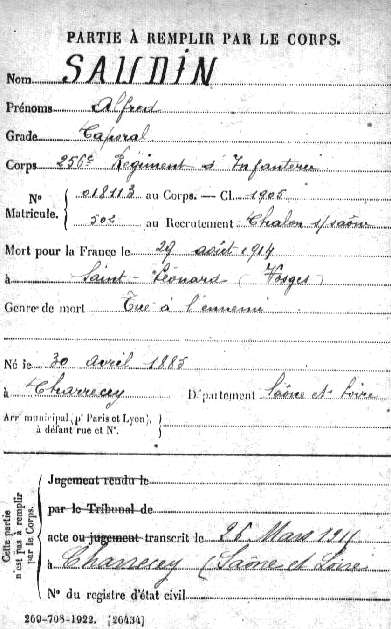 PARTIE À REMPLIR PAR LE CORPS.
Nom SAUDIN
Prénoms Alfred
Grade Caporal
Corps 256e Régiment d'Infanterie
No Matricule. 018113 au Corps. — Cl. 1905
502 au Recrutement Chalon s/saône
Mort pour la France le 29 août 1914
à Saint-Léonard (Vosges)
Genre de mort Tué à l'ennemi
Né le 30 avril 1885
à Charrecey Département Saône et Loire
Arrt municipal (pr Paris et Lyon),
à défaut rue et No.
Cette partie n'est pas à remplir par le Corps.
Jugement rendu le
par le Tribunal de
acte ou jugement transcrit le 26 Mars
à Charrecey (Saône et Loire
No du registre d'état civil
269-708-1922. [26434]